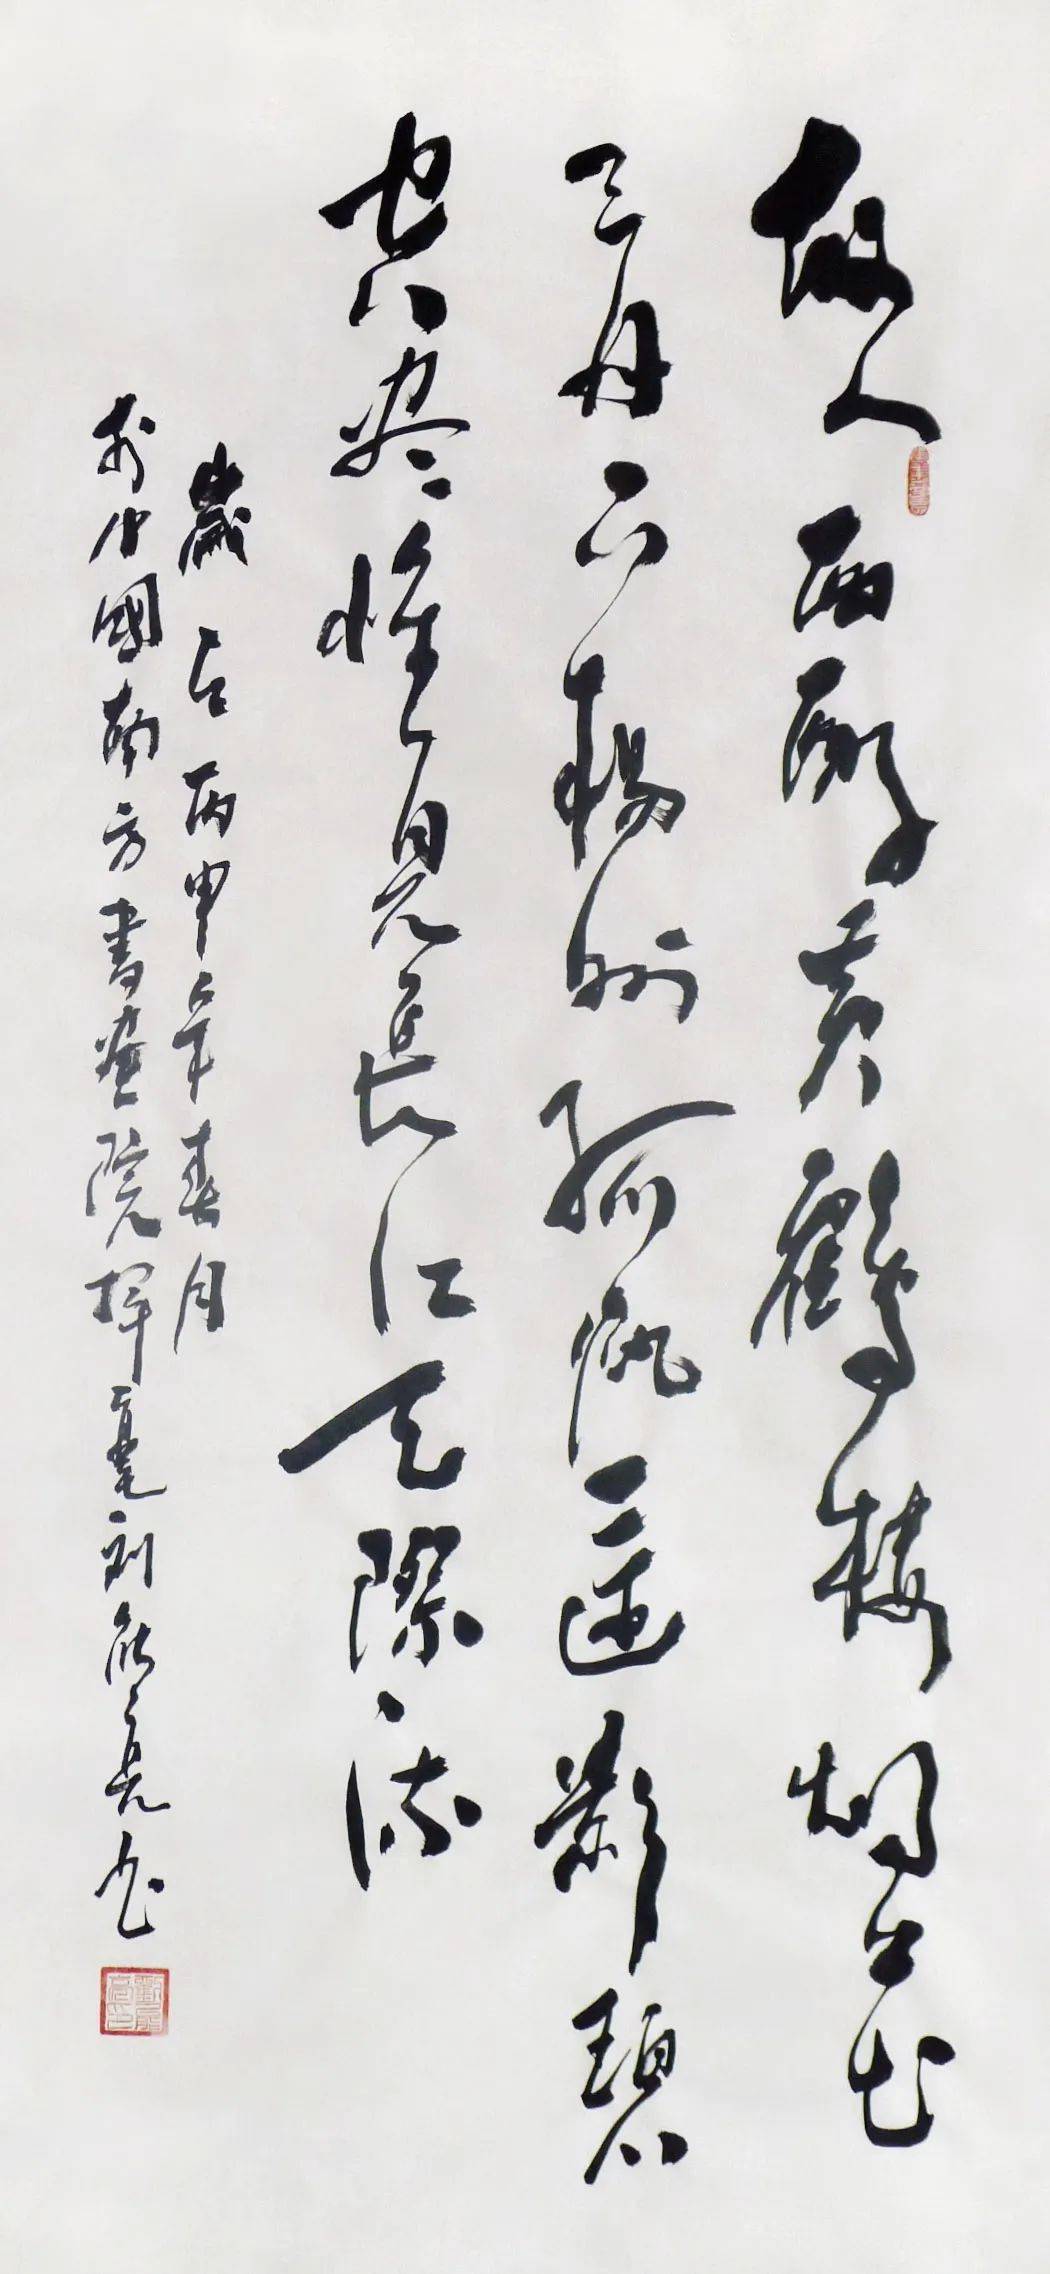 故人西辭黄鶴樓烟花
三月下楊州孤帆遠影碧
空尽惟見長江天際流
歲在丙申年春月
於中國南方書畫院揮毫刘能亮书